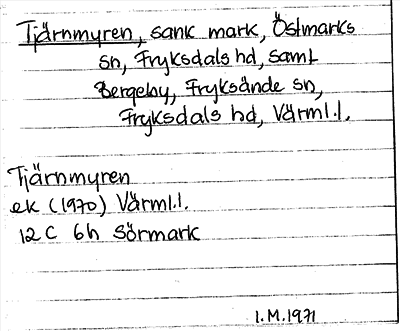 Tjärnmyren, sank mark, Östmarks
sn, Fryksdals hd, samt
Bergeby, Fryksände sn,
Fryksdals hd, Värml.l.
Tjärnmyren
ek (1970) Värml.l.
12 C 6h Sörmark
I.M.1971